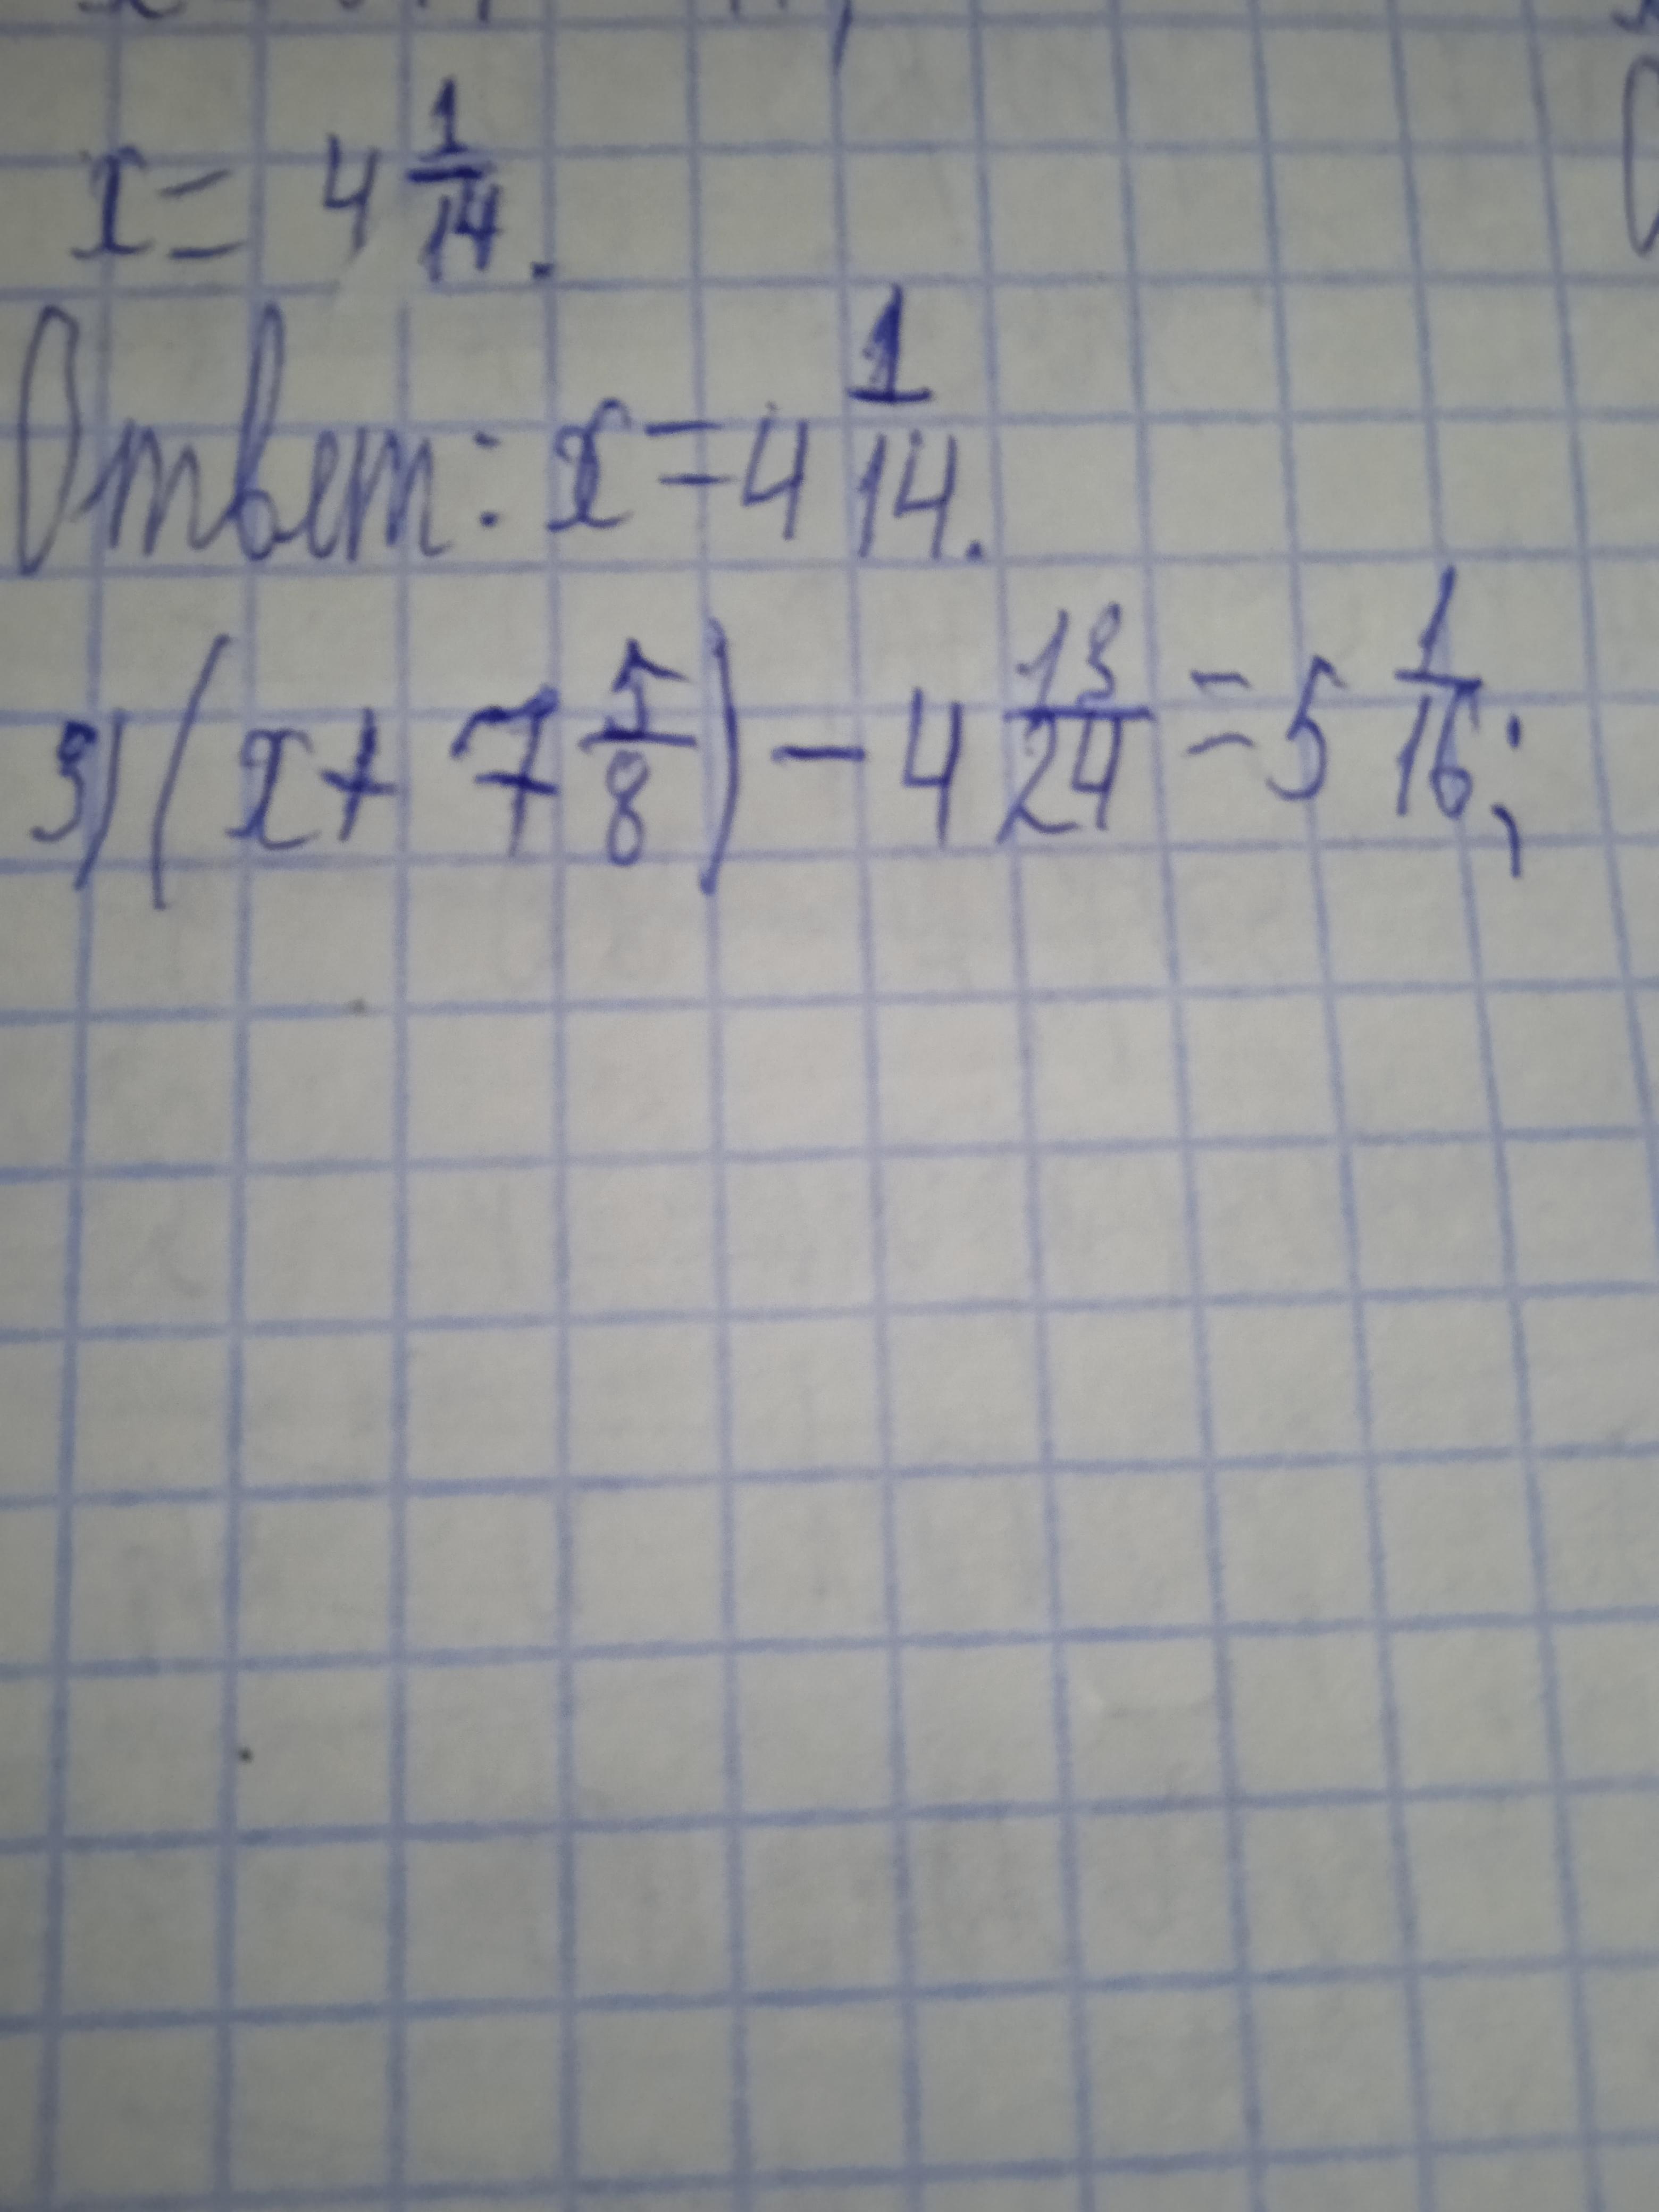 x = 4 1/14.
Ответ: x = 4 1/14.
3) (x + 7 5/8) - 4 13/24 = 5 1/16;